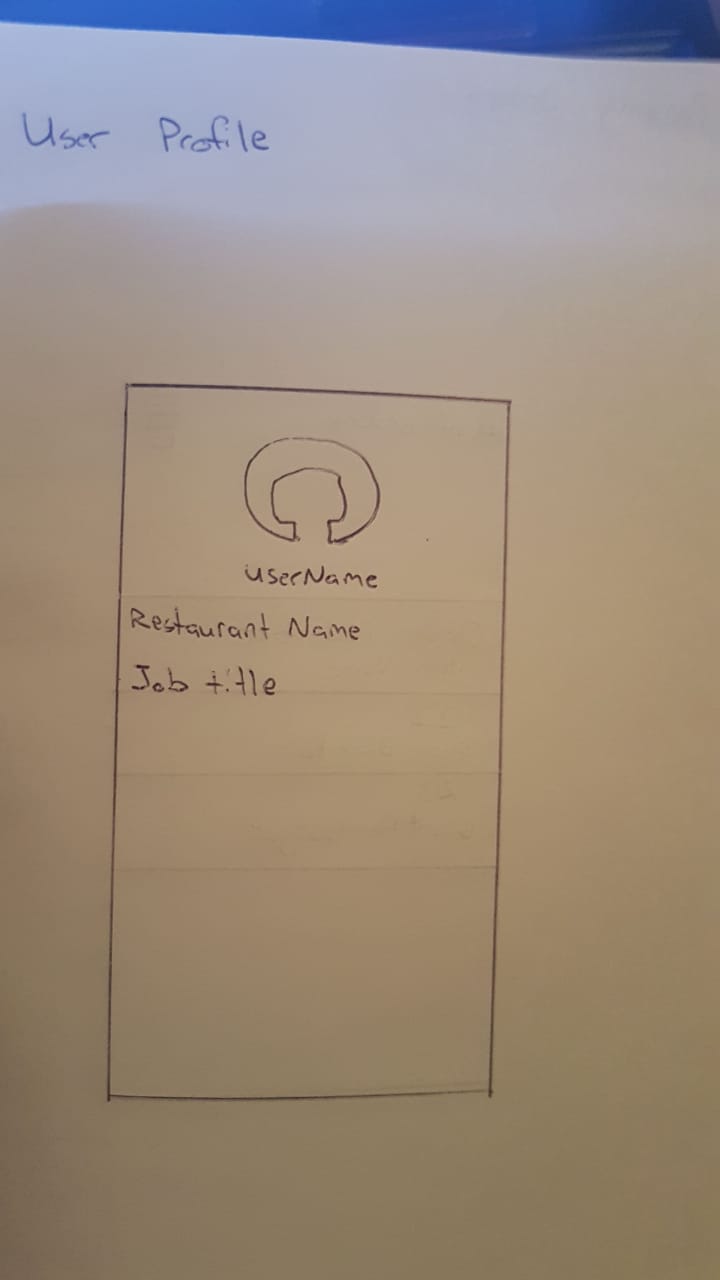 User Profile
userName
Restaurant Name
Job title